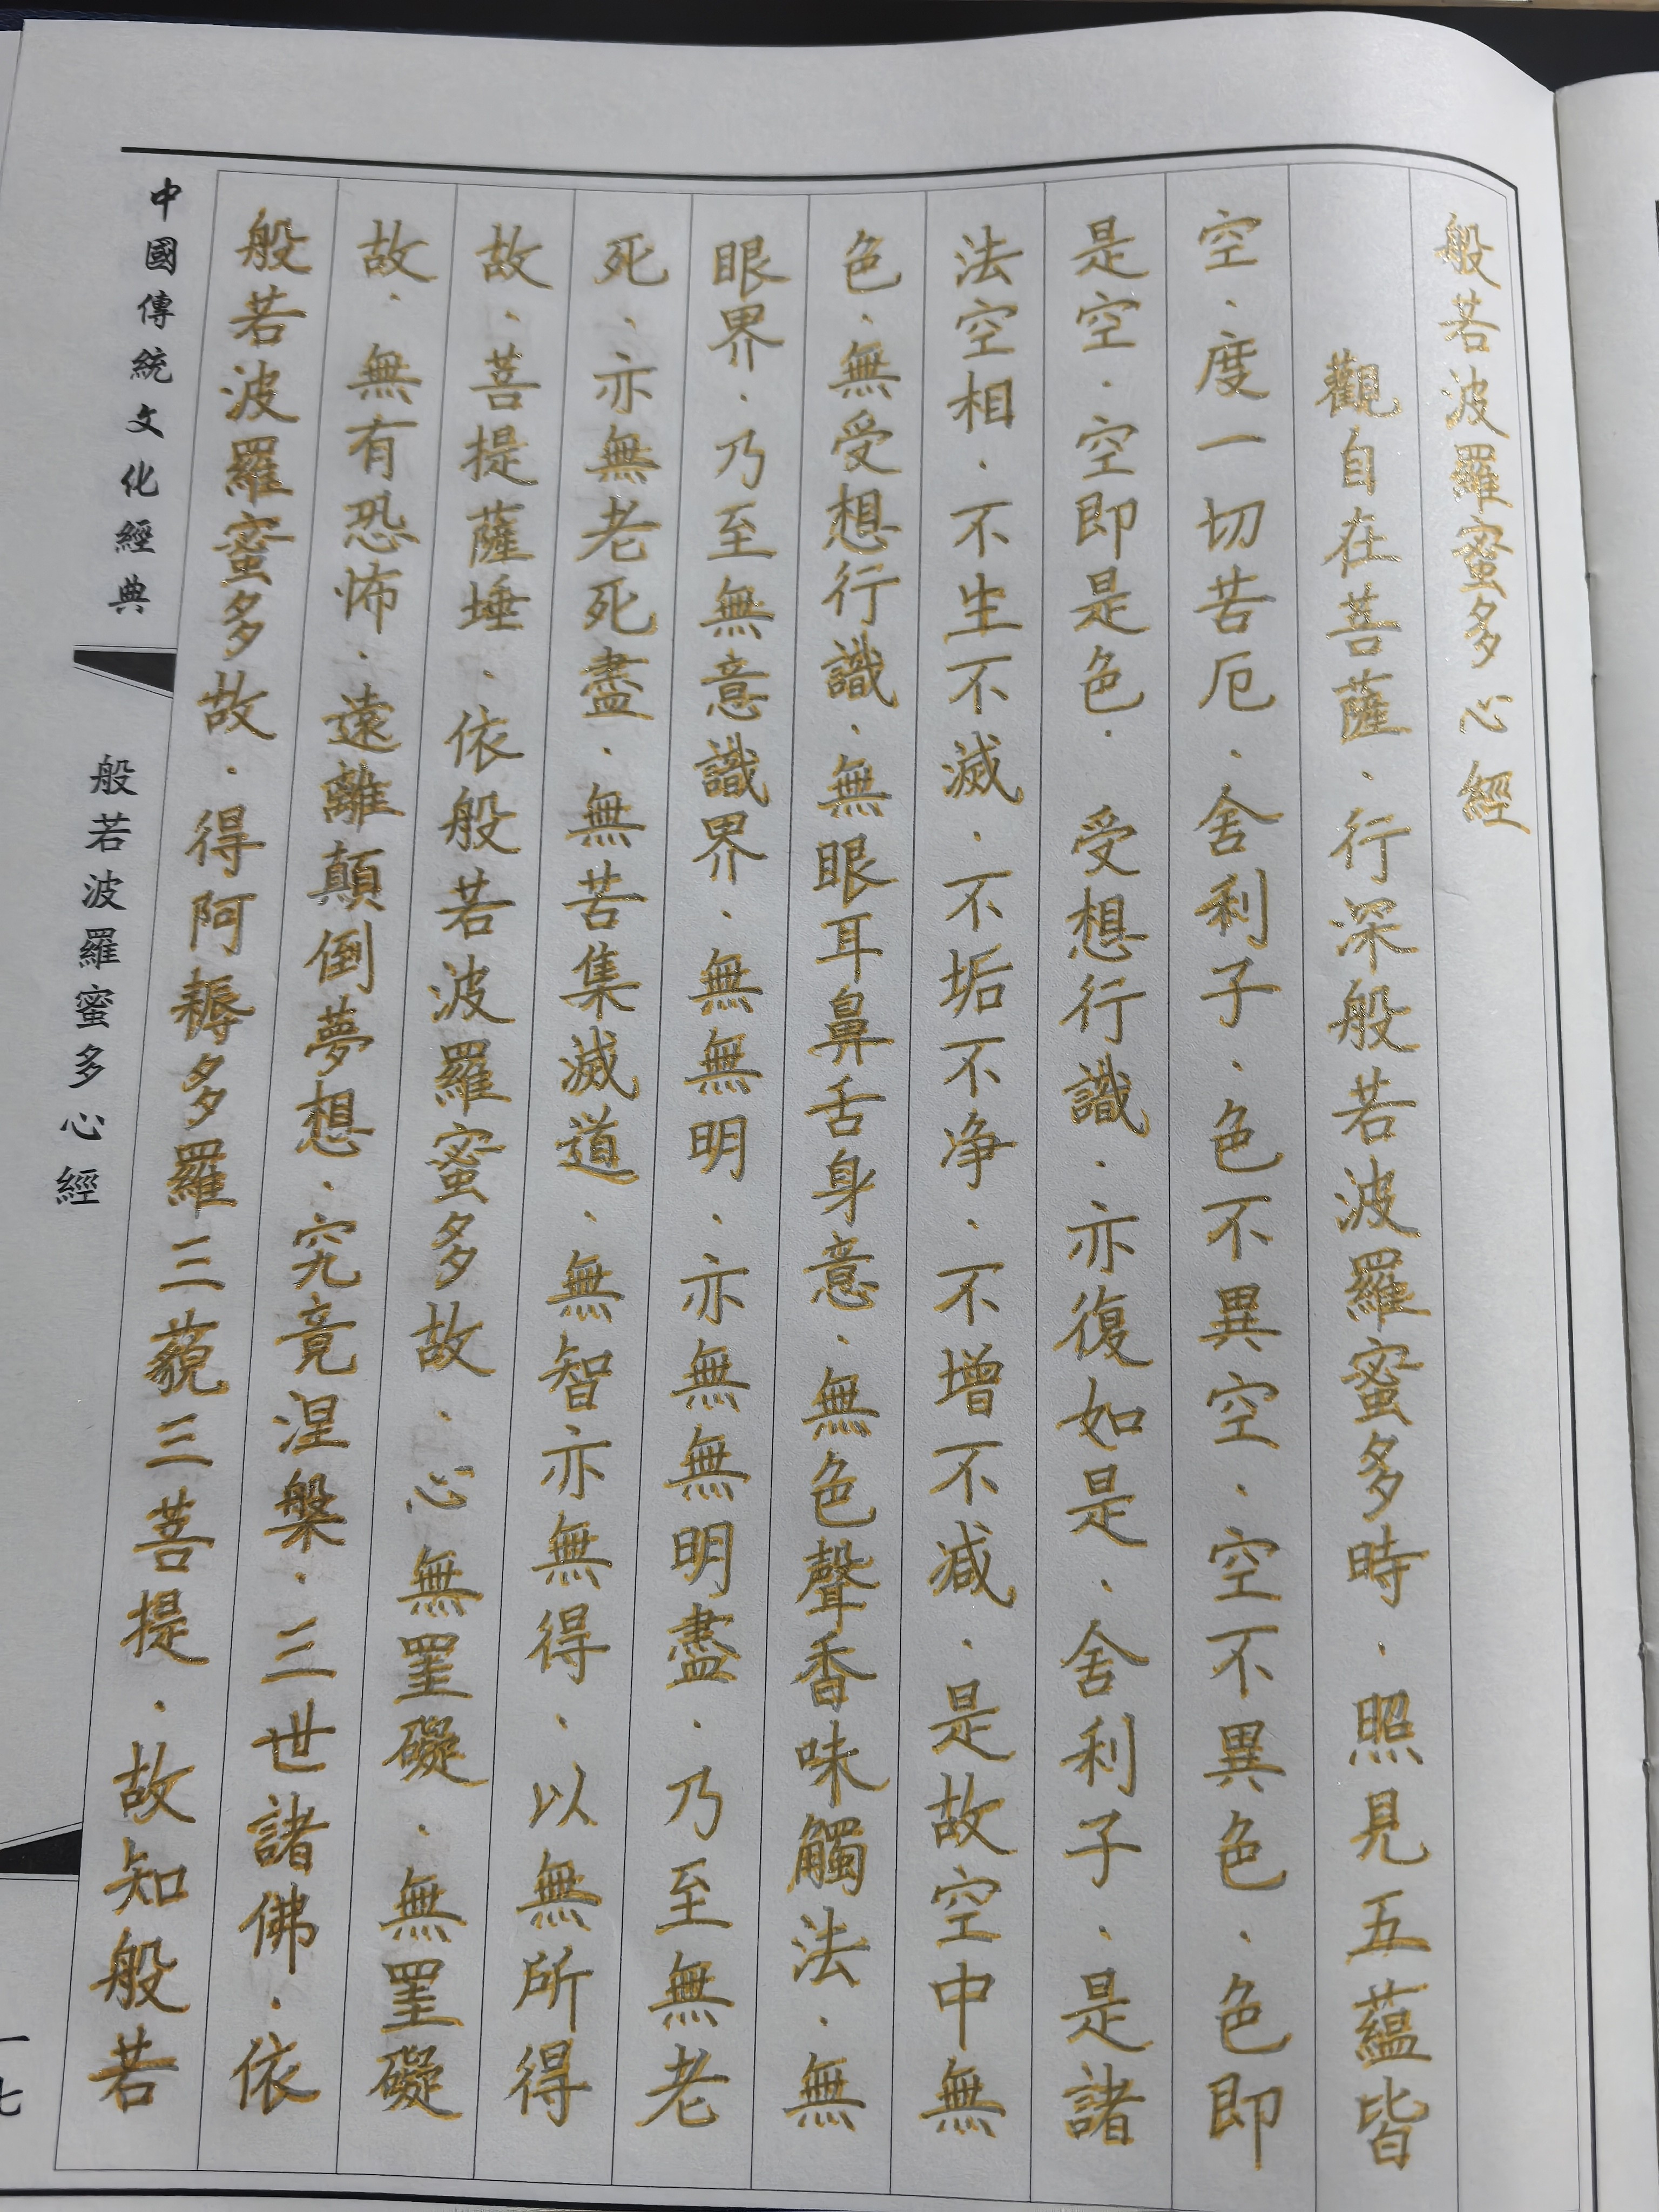 般若波羅蜜多心經
觀自在菩薩．行深般若波羅蜜多時．照見五蘊皆
空．度一切苦厄．舍利子．色不異空．空不異色．色即
是空．空即是色．受想行識．亦復如是．舍利子．是諸
法空相．不生不滅．不垢不净．不增不减．是故空中無
色．無受想行識．無眼耳鼻舌身意．無色聲香味觸法．無
眼界．乃至無意識界．無無明．亦無無明盡．乃至無老
死．亦無老死盡．無苦集滅道．無智亦無得．以無所得
故．菩提薩埵．依般若波羅蜜多故．心無罣礙．無罣礙
故．無有恐怖．遠離顛倒夢想．究竟涅槃．三世諸佛．依
般若波羅蜜多故．得阿耨多羅三藐三菩提．故知般若
中國傳統文化經典
般若波羅蜜多心經
一七